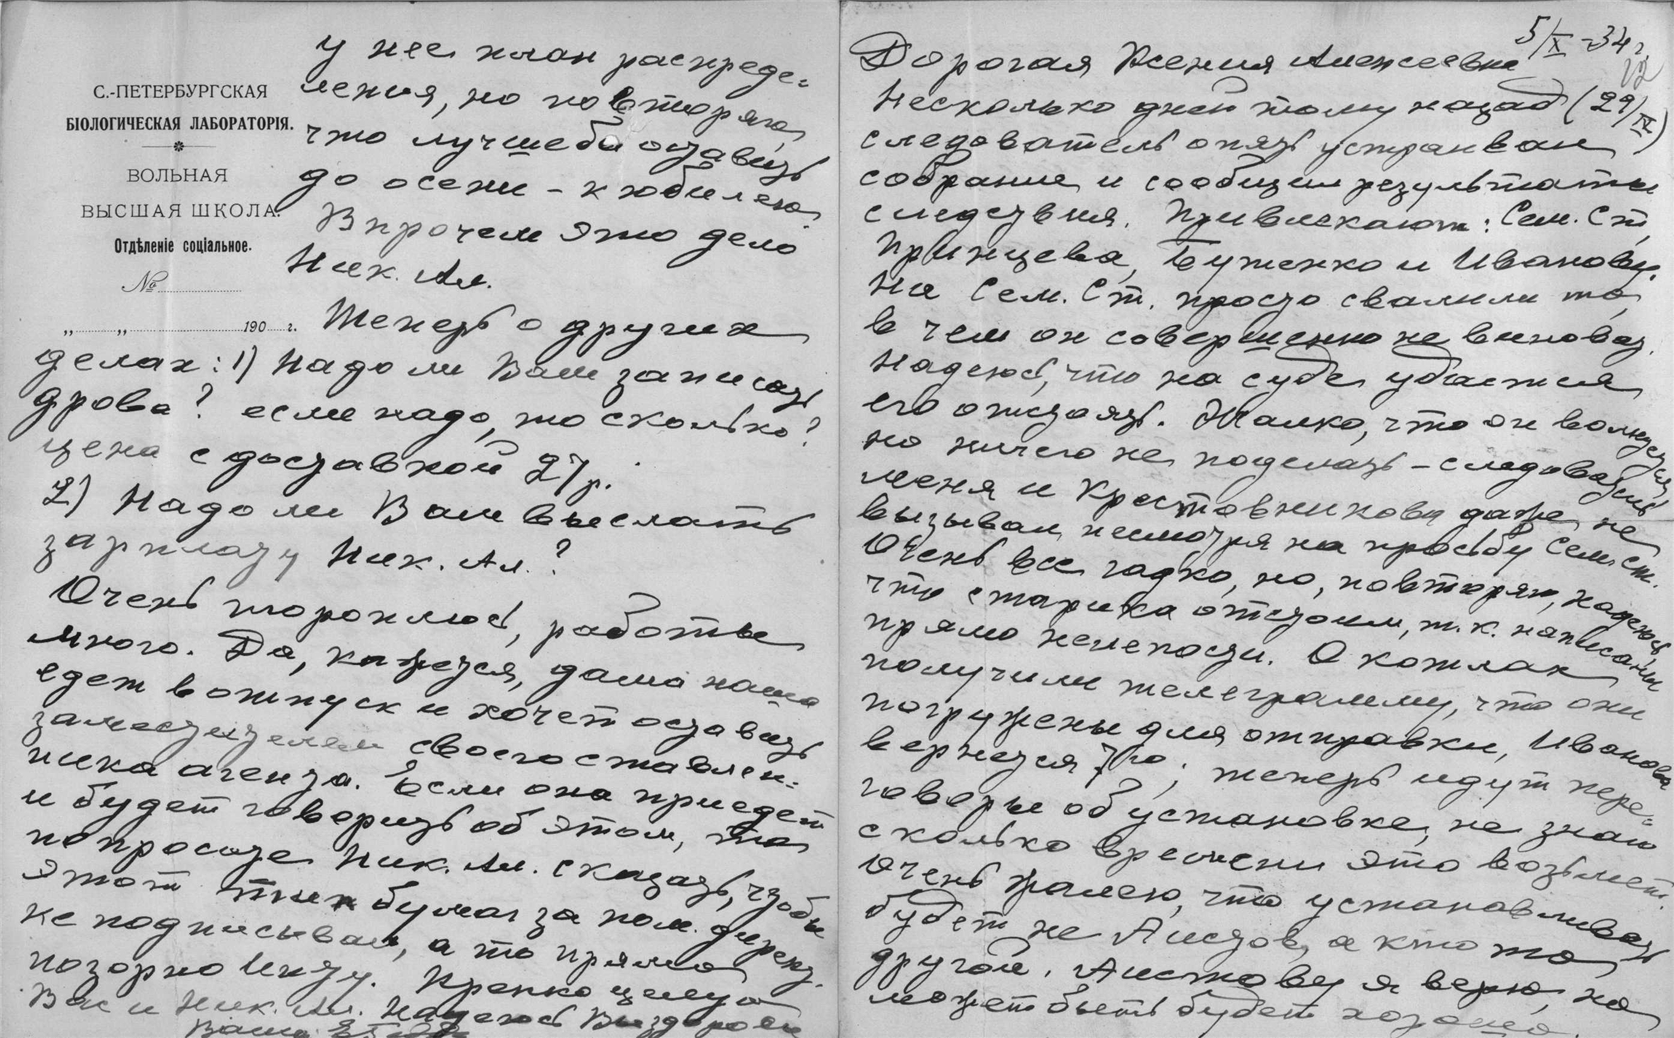 5/X -34 г.
12
Дорогая Ксения Алексеевна
Несколько дней тому назад (29/IX)
следователь опять устраивал
собрание и сообщил результаты
следствия. Привлекают: Сем. Ст.,
Принцева, Буженко и Иванову.
На Сем. Ст. просто свалили то,
в чем он совершенно не виноват.
Надеюсь, что на суде удастся
его отстоять. Жалко, что он волнуется
но ничего не поделать – следователь
меня и Крестовникову даже не
вызывал, несмотря на просьбу Сем. Ст.
Очень все гадко, но, повторяю, надеюсь
что старика отстоим, т.к. написаны
прямо нелепости. О котлах
получили телеграмму, что они
погружены для отправки, Иванова
вернется 7го; теперь идут пере=
говоры об установке, не знаю
сколько времени это возьмет.
Очень жалею, что устанавливать
будет не Аистов, а кто то
другой. Аистову я верю, но
может быть будет хорошо.
С.-ПЕТЕРБУРГСКАЯ
БІОЛОГИЧЕСКАЯ ЛАБОРАТОРІЯ.
ВОЛЬНАЯ
ВЫСШАЯ ШКОЛА.
Отдѣленіе соціальное.
№
„ „ 190 г.
У нее план распреде=
ления, но повторяю,
что лучше бы оставить
до осени – к юбилею
Впрочем это дело
Ник. Ал.
Теперь о других
делах: 1) Надо ли Вам записать
дрова? если надо, то сколько?
цена с доставкой 27 р.
2) Надо ли Вам выслать
зарплату Ник. Ал.?
Очень тороплюсь, работы
много. Да, кажется, дама наша
едет в отпуск и хочет оставить
заместителем своего ставлен=
ника агента. Если она приедет
и будет говорить об этом, то
попросите Ник. Ал. сказать, чтобы
этот тип бумаг за пом. директ.
не подписывал, а то прямо
позорно Инту. Крепко целую
Вас и Ник. Ал. Надеюсь Вы здоровы
Ваша